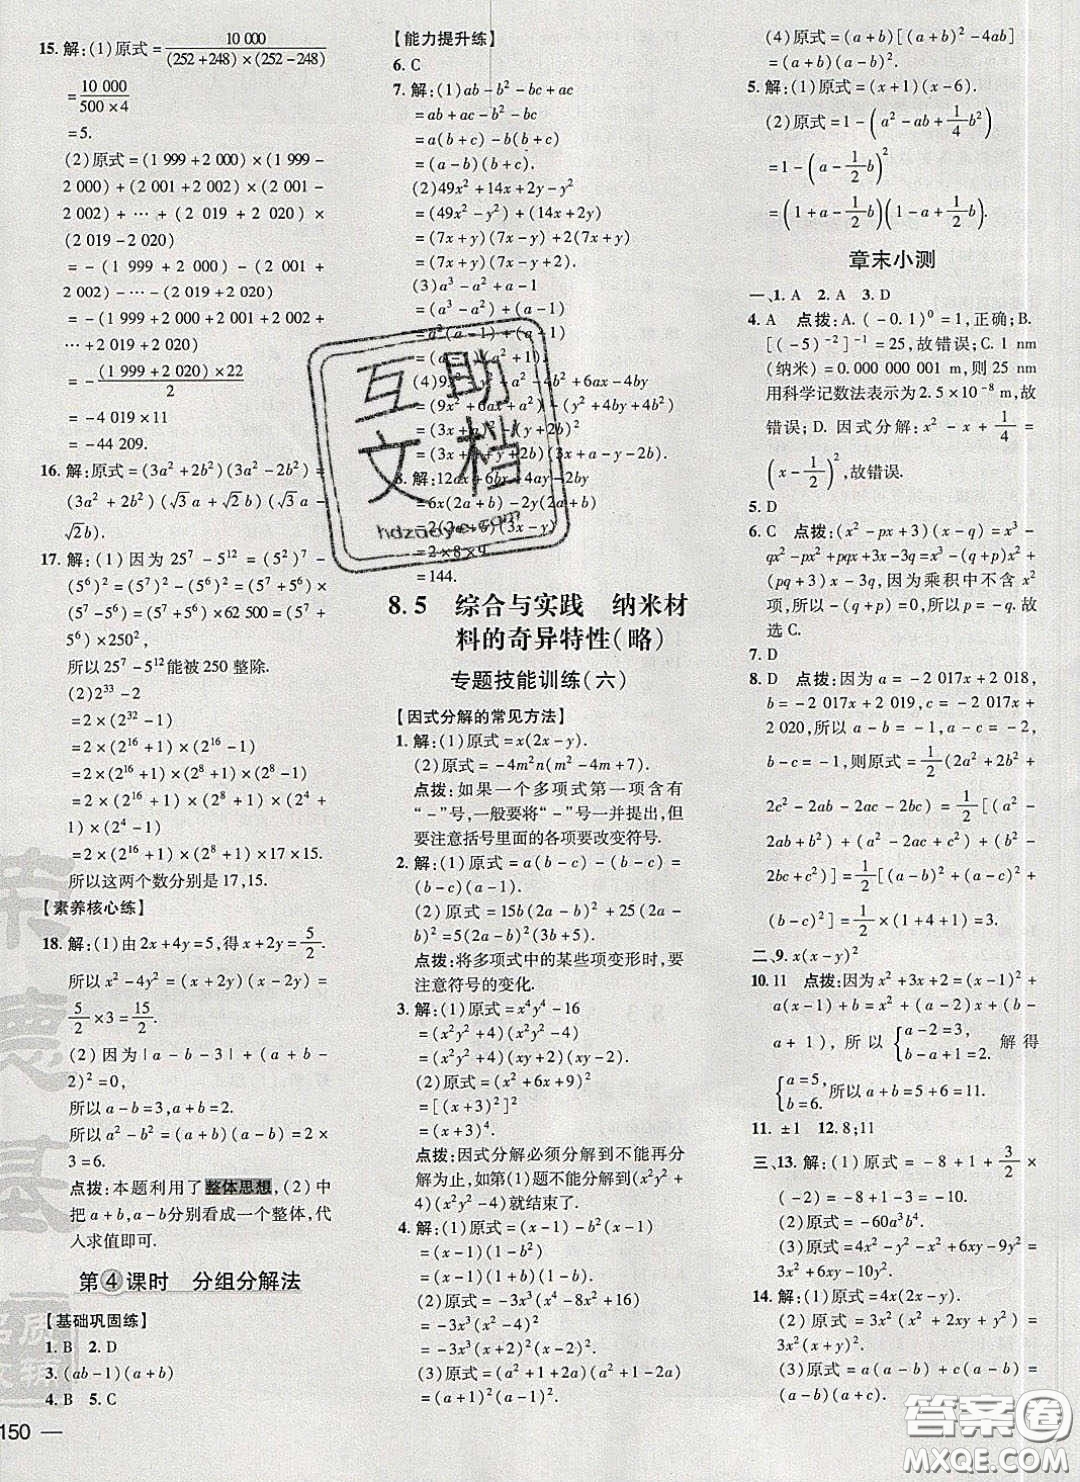 15. 解:(1)原式=10 000/((252+248)×(252-248))
=10 000/(500×4)
=5.
(2)原式=(1 999+2 000)×(1 999-
2 000)+(2 001+2 002)×(2 001-
2 002)+…+(2 019+2 020)×
(2 019-2 020)
=-(1 999+2 000)-(2 001+
2 002)-…-(2 019+2 020)
=-(1 999+2 000+2 001+2 002+
…+2 019+2 020)
=-((1 999+2 020)×22)/2
=-4 019×11
=-44 209.
16. 解:原式=(3a²+2b²)(3a²-2b²)=
(3a²+2b²)(√3a+√2b)(√3a-
√2b).
17. 解:(1)因为25⁷-5¹²=(5²)⁷-
(5⁶)²=(5⁷)²-(5⁶)²=(5⁷+5⁶)×
(5⁷-5⁶)=(5⁷+5⁶)×62 500=(5⁷+
5⁶)×250²,
所以25⁷-5¹²能被250整除.
(2)2³³-2
=2×(2³²-1)
=2×(2¹⁶+1)×(2¹⁶-1)
=2×(2¹⁶+1)×(2⁸+1)×(2⁸-1)
=2×(2¹⁶+1)×(2⁸+1)×(2⁴+
1)×(2⁴-1)
=2×(2¹⁶+1)×(2⁸+1)×17×15.
所以这两个数分别是17,15.
【素养核心练】
18. 解:(1)由2x+4y=5,得x+2y=5/2.
所以x²-4y²=(x+2y)(x-2y)=
5/2×3=15/2.
(2)因为|a-b-3|+(a+b-
2)²=0,
所以a-b=3,a+b=2.
所以a²-b²=(a+b)(a-b)=2×
3=6.
点拨:本题利用了整体思想,(2)中
把a+b,a-b分别看成一个整体,代
入求值即可.
第4课时 分组分解法
【基础巩固练】
1. B 2. D
3. (ab-1)(a+b)
4. B 5. C
150
【能力提升练】
6. C
7. 解:(1)ab-b²-bc+ac
=ab+ac-b²-bc
=a(b+c)-b(b+c)
=(a-b)(b+c).
(2)49x²+14x+2y-y²
=(49x²-y²)+(14x+2y)
=(7x+y)(7x-y)+2(7x+y)
=(7x+y)(7x-y+2).
(3)a³-a²+a-1
=(a³-a²)+(a-1)
=a²(a-1)+(a-1)
=(a-1)(a²+1).
(4)9x²-y²-4b²+6ax-4by
8. 12ax+6bx-4ay-2by
=6x(2a+b)-2y(2a+b)
=2(2a+b)(3x-y)
=2×8×9
=144.
8.5 综合与实践 纳米材
料的奇异特性(略)
专题技能训练(六)
【因式分解的常见方法】
1. 解:(1)原式=x(2x-y).
(2)原式=-4m²n(m²-4m+7).
点拨:如果一个多项式第一项含有
“-”号,一般要将“-”号一并提出,但
要注意括号里面的各项要改变符号.
2. 解:(1)原式=a(b-c)-(b-c)=
(b-c)(a-1).
(2)原式=15b(2a-b)²+5(2a-b)²
=5(2a-b)²(3b+1).
点拨:将多项式中的某些项变形时,要
注意符号的变化.
3. 解:(1)原式=x⁴y⁴-16
=(x²y²+4)(x²y²-4)
=(x²y²+4)(xy+2)(xy-2).
(2)原式=(x²+6x+9)²
=[(x+3)²]²
=(x+3)⁴.
点拨:因式分解必须分解到不能再分
解为止,如第(1)题不能分解到(x²y²+
4)(x²y²-4)就结束了.
4. 解:(1)原式=(x-1)-b²(x-1)
=(x-1)(1-b²)
=(x-1)(1+b)(1-b).
(2)原式=-3x³(x⁴-8x²+16)
=-3x³(x²-4)²
=-3x³(x+2)²(x-2)².
(3)原式=(a²+1+2a)(a²+1-2a)
=(a+1)²(a-1)².
(4)原式=(a+b)[(a+b)²-4ab]
=(a+b)(a-b)².
5. 解:(1)原式=(x+1)(x-6).
(2)原式=1-(a²-ab+1/4b²)
=1-(a-1/2b)²
=(1+a-1/2b)(1-a+1/2b).
章末小测
一、1. A 2. A 3. D
4. A 点拨:A.(-0.1)⁰=1,正确;B.
[(-5)⁻²]⁻¹=25,故错误;C. 1 nm
(纳米)=0.000 000 001 m,则25 nm
用科学记数法表示为2.5×10⁻⁸ m,故
错误; D. 因式分解: x²-x+1/4=
(x-1/2)²,故错误.
5. D
6. C 点拨:(x²-px+3)(x-q)=x³-
qx²-px²+pqx+3x-3q=x³-(p+q)x²+
(pq+3)x-3q. 因为乘积中不含x²
项,所以-(q+p)=0,即q+p=0. 故
选C.
7. D
8. D 点拨:因为a=-2 017x+2 018,
b=-2 017x+2 019,c=-2 017x+
2 020,所以a-b=-1,a-c=-2,
b-c=-1,则原式=1/2(2a²+2b²+
2c²-2ab-2ac-2bc)=1/2[(a²-
2ab+b²)+(a²-2ac+c²)+(b²-
2bc+c²)]=1/2[(a-b)²+(a-c)²+
(b-c)²]=1/2×(1+4+1)=3.
二、9. x(x-y)²
10. 11 点拨:因为x²+3x+2=(x-1)²+
a(x-1)+b=x²+(a-2)x+(b-
a+1),所以{a-2=3, b-a+1=2. 解得
{a=5, b=6. 所以a+b=5+6=11.
11. ±1 12. 8;11
三、13. 解:(1)原式=-8+1+3/2×
(-2)=-8+1-3=-10.
(2)原式=-60a³b⁴.
(3)原式=4x²-6xy+6xy-9y²=
4x²-9y².
14. 解:(1)原式=4x(2x-y).
(3)原式=a(a-b)+c(a-b)=
(a-b)(a+c).
互助文档
hdzuoye.com
荣德基
答案圈
MXQE.COM